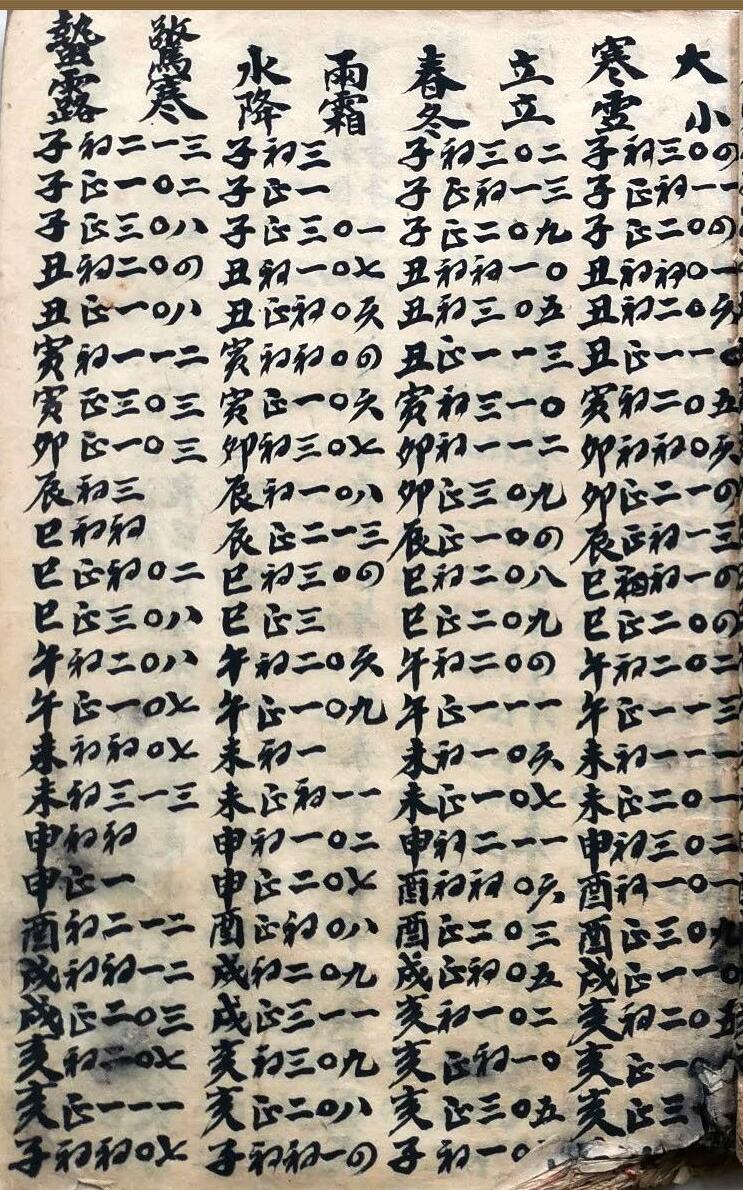 大寒
小雪
子初三〇四
子正初一一
子正二〇四
丑初初〇一
丑初二〇六
丑正一一〇
寅初二〇五
卯初初〇六
卯正二一四
辰正初一三
巳初初一四
巳正二〇四
午初二〇二
午正一一三
未初一一一
未正二〇一
申初三〇二
酉初一〇一
酉正三〇九
戌正一一〇
亥初二〇五
亥正一
亥正三
立春
立冬
子初三〇二
子正初一三
子正二〇九
丑初初一〇
丑初三〇五
丑正一一三
寅初三一〇
卯初一一二
卯正三〇九
辰正一〇四
巳初二〇八
巳正二〇九
午初二〇四
午正一一一
未初一〇六
未正一〇七
申初二一一
酉初初〇六
酉正二〇三
戌正初〇五
亥初一〇二
亥正初一〇
亥正三〇五
子初一〇
雨水
霜降
子初三
子正一
子正三〇一
丑初一〇七
丑正初〇六
寅初初〇四
寅正一〇六
卯初三〇七
辰初一〇八
辰正二一三
巳初三〇四
巳正三
午初二〇六
午正一〇九
未初一
未正初一一
申初一〇二
申正二〇七
酉正初〇八
戌初二〇九
戌正三一一
亥初三〇九
亥正二〇八
子初初一四
驚蟄
寒露
子初二一三
子正一〇二
子正三〇八
丑初二〇四
丑正一〇八
寅初一一二
寅正三〇三
卯正一〇三
辰初三
巳初初
巳正初〇二
巳正三〇八
午初二〇八
午正一〇七
未初初〇七
未初三一三
申初初
申正一
酉初二一二
戌初初一二
戌正二〇三
亥初二〇七
亥正一一一
子初初〇七